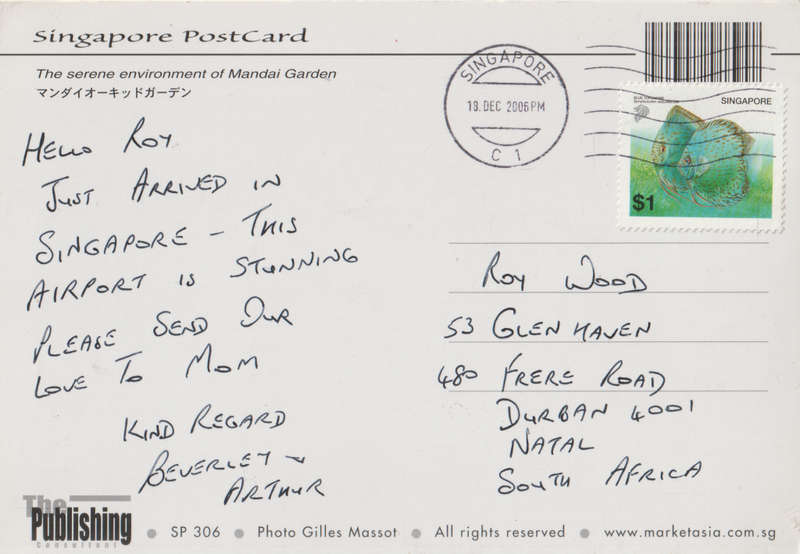 Singapore PostCard
The serene environment of Mandai Garden
マンダイオーキッドガーデン
HELLO ROY
JUST ARRIVED IN
SINGAPORE – THIS
AIRPORT IS STUNNING
PLEASE SEND OUR
LOVE TO MOM
KIND REGARD
BEVERLEY ~
ARTHUR
SINGAPORE
19 DEC 2006 PM
C 1
SINGAPORE
$1
ROY WOOD
53 GLENHAVEN
480 FRERE ROAD
DURBAN 4001
NATAL
SOUTH AFRICA
The
Publishing
Consultant
SP 306 Photo Gilles Massot All rights reserved www.marketasia.com.sg